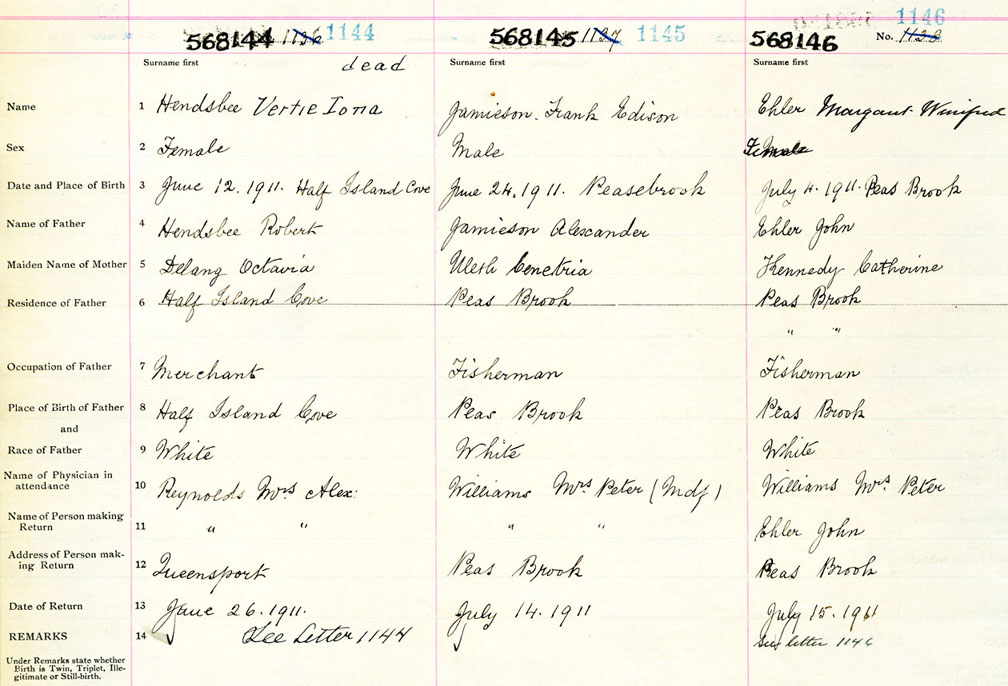 568144 1136 1144 568145 1137 1145 568146 No. 1138 1146
Surname first dead Surname first Surname first
Name 1 Hendsbee Vertie Iona Jamieson. Frank Edison Ehler Margaret Winifred
Sex 2 Female Male Female
Date and Place of Birth 3 June 12. 1911. Half Island Cove June 24. 1911. Peasebrook July 4. 1911. Peas Brook
Name of Father 4 Hendsbee Robert Jamieson Alexander Ehler John
Maiden Name of Mother 5 Delang Octavia Cenetria Kennedy Catherine
Residence of Father 6 Half Island Cove Peas Brook Peas Brook
" "
Occupation of Father 7 Merchant Fisherman Fisherman
Place of Birth of Father 8 Half Island Cove Peas Brook Peas Brook
and
Race of Father 9 White White White
Name of Physician in
attendance 10 Reynolds Mrs Alex: Williams Mrs Peter (Mdf) Williams Mrs Peter
Name of Person making
Return 11 " " " " Ehler John
Address of Person mak-
ing Return 12 Queensport Peas Brook Peas Brook
Date of Return 13 June 26. 1911. July 14. 1911 July 15. 1911
REMARKS 14 See Letter 1144 See letter 1146
Under Remarks state whether
Birth is Twin, Triplet, Ille-
gitimate or Still-birth.